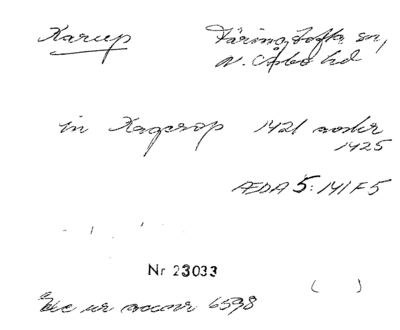 Karup
Färingtofta sn,
N. Åsbo hd
in Kagerop 1421
1425
ÆDA 5: 141 F 5
Nr 23033
( )
6598